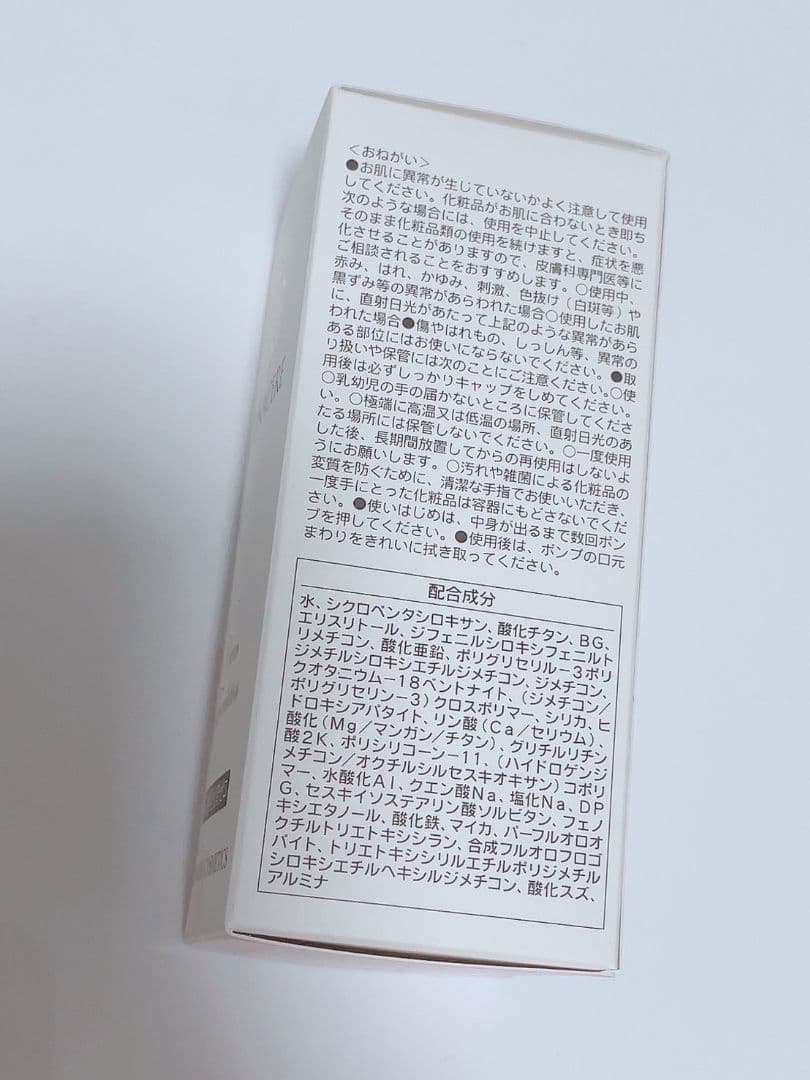 ＜おねがい＞
●お肌に異常が生じていないかよく注意して使用
してください。化粧品がお肌に合わないとき即ち
次のような場合には、使用を中止してください。
そのまま化粧品類の使用を続けますと、症状を悪
化させることがありますので、皮膚科専門医等に
ご相談されることをおすすめします。○使用中、
赤み、はれ、かゆみ、刺激、色抜け（白斑等）や
黒ずみ等の異常があらわれた場合○使用したお肌
に、直射日光があたって上記のような異常があら
われた場合●傷やはれもの、しっしん等、異常の
ある部位にはお使いにならないでください。●取
り扱いや保管には次のことにご注意ください。○使
用後は必ずしっかりキャップをしめてください。
○乳幼児の手の届かないところに保管してくださ
い。○極端に高温又は低温の場所、直射日光のあ
たる場所には保管しないでください。○一度使用
した後、長期間放置してからの再使用はしないよ
うにお願いします。○汚れや雑菌による化粧品の
変質を防ぐために、清潔な手指でお使いいただき、
一度手にとった化粧品は容器にもどさないでくだ
さい。●使いはじめは、中身が出るまで数回ポン
プを押してください。●使用後は、ポンプの口元
まわりをきれいに拭き取ってください。
配合成分
水、シクロペンタシロキサン、酸化チタン、BG、
エリスリトール、ジフェニルシロキシフェニルト
リメチコン、酸化亜鉛、ポリグリセリル－3ポリ
ジメチルシロキシエチルジメチコン、ジメチコン、
クオタニウム－18ベントナイト、（ジメチコン／
ポリグリセリン－3）クロスポリマー、シリカ、ヒ
ドロキシアパタイト、リン酸（Ca／セリウム）、
酸化（Mg／マンガン／チタン）、グリチルリチン
酸2K、ポリシリコーン－11、（ハイドロゲンジ
メチコン／オクチルシルセスキオキサン）コポリ
マー、水酸化Al、クエン酸Na、塩化Na、DP
G、セスキイソステアリン酸ソルビタン、フェノ
キシエタノール、酸化鉄、マイカ、パーフルオロオ
クチルトリエトキシシラン、合成フルオロフロゴ
パイト、トリエトキシシリルエチルポリジメチル
シロキシエチルヘキシルジメチコン、酸化スズ、
アルミナ